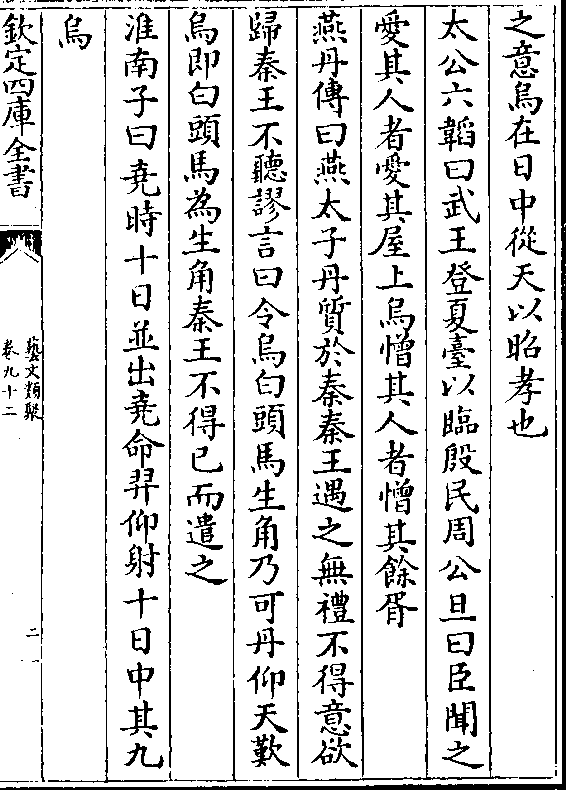 之意烏在日中從天以昭孝也
太公六韜曰武王登夏臺以臨殷民周公旦曰臣聞之
愛其人者愛其屋上烏憎其人者憎其餘胥
燕丹傳曰燕太子丹質於秦秦王遇之無禮不得意欲
歸秦王不聽謬言曰令烏白頭馬生角乃可丹仰天歎
烏即白頭馬為生角秦王不得已而遣之
淮南子曰堯時十日並出堯命羿仰射十日中其九
烏
欽定四庫全書
藝文類聚
卷九十二
二